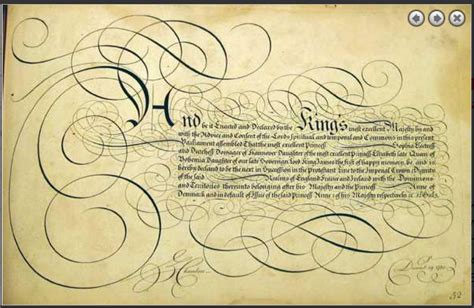 And be it Enacted and Declared by the Kings most excellent Majesty by and
with the Advice and Consent of the Lords Spiritual and temporal and Commons in this present
Parliament assembled That the most excellent Princess Sophia Electress
and Dutchess Dowager of Hannover Daughter of the most excellent Princess Elizabeth late Queen of
Bohemia Daughter of our late Sovereign Lord King James the first of happy memory, be and is
hereby declared to be the next in Succession in the Protestant Line to the Imperial Crown & Dignity
of the said Realms of England France and Ireland with the Dominions
and Territories thereunto belonging after his Majesty and the Princess Anne of
Denmark and in default of Issue of the said Princess Anne & of his Majesty respectively
52